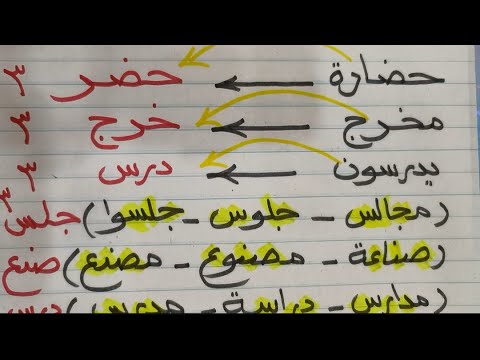 حضارة ← حضر ٣
مخرج ← خرج ٣
يدرسون ← درس ٣
(مجالس - جلوس - جلسوا) جلس ٣
(صناعة - مصنوع - مصنع) صنع
(مدارس - دراسة - مدرس) درس